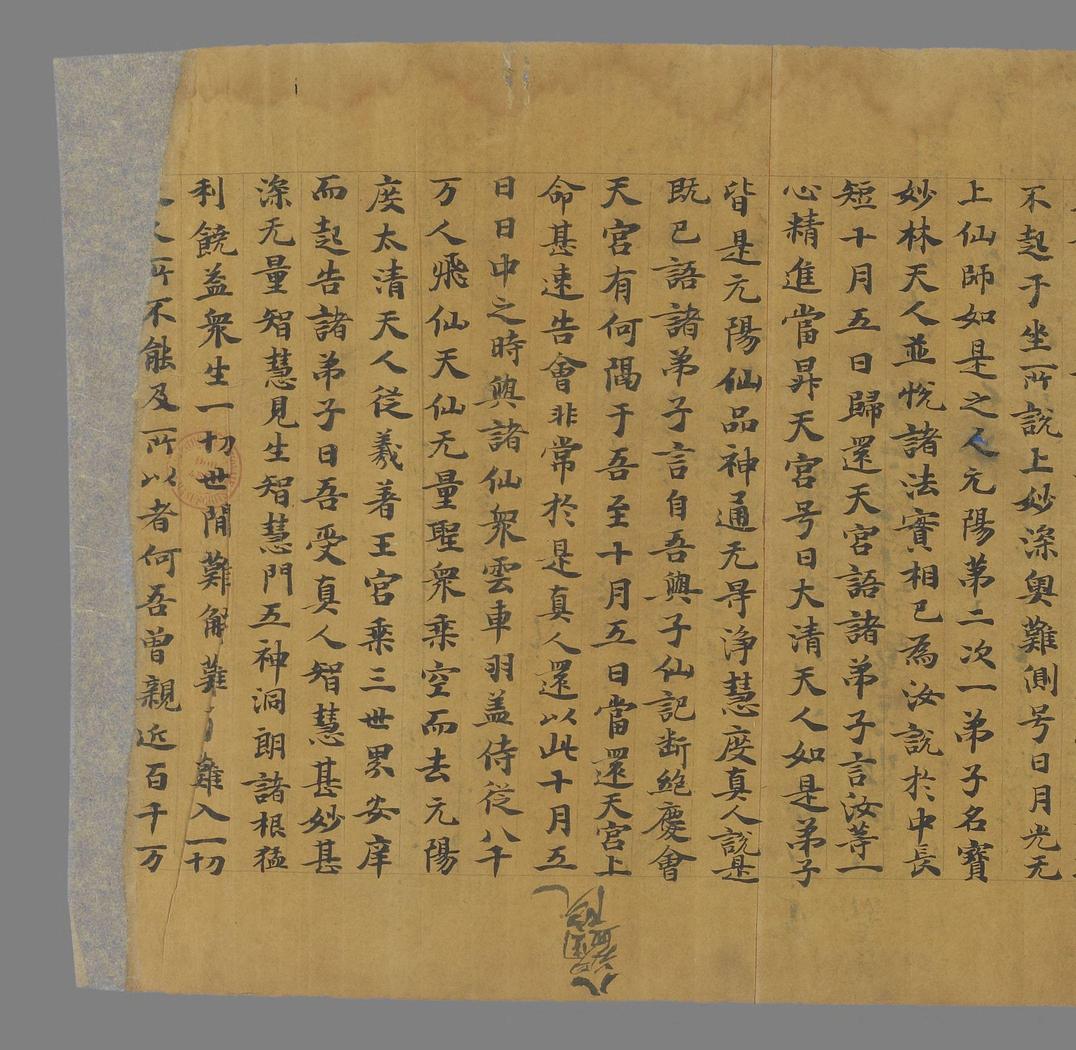 不起于坐所說上妙深奧難測号日月光无
上仙師如是之人元陽苐二次一弟子名寶
妙林天人並恱諸法實相已為汝說於中長
短十月五日歸還天宮語諸弟子言汝等一
心精進當昇天宮号曰大清天人如是弟子
皆是元陽仙品神通无㝵淨慧度真人說是
既已語諸弟子言自吾與子仙記断絕慶會
天宮有何隔于吾至十月五日當還天宮上
命甚速告會非常於是真人還以此十月五
日日中之時與諸仙衆雲車羽盖侍從八千
万人飛仙天仙无量聖衆乘空而去元陽
度太清天人從義著王宮乘三世界安庠
而起告諸弟子曰吾受真人智慧甚妙甚
深无量智慧見生智慧門五神洞朗諸根猛
利饒益衆生一切世間難解難了難入一切
所不能及所以者何吾曾親近百千万